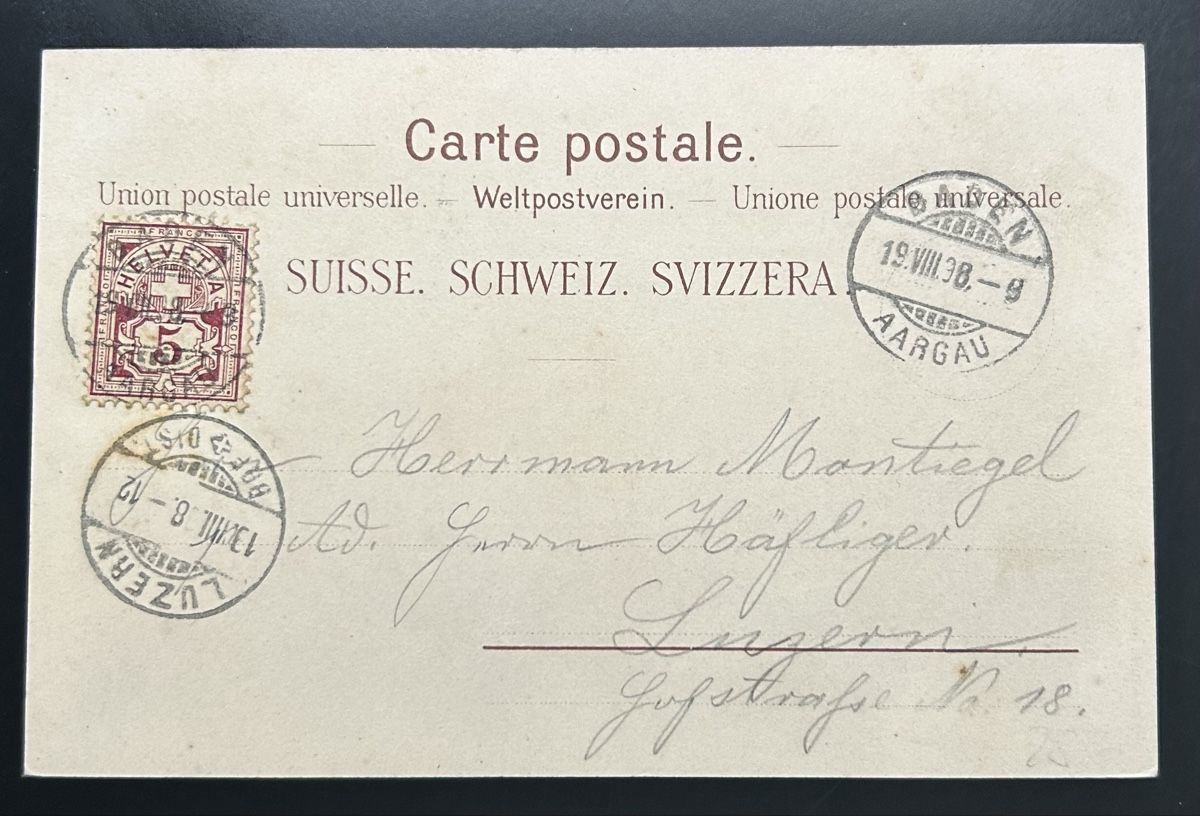 Carte postale.
Union postale universelle. — Weltpostverein. — Unione postale universale.
SUISSE. SCHWEIZ. SVIZZERA.
BADEN
19.VIII.98.–9
AARGAU
FRANCO
HELVETIA
FRANCO
FRANCO
5
LUZERN
VIII.98.–12
BRF. DIST.
Herrmann Montiegel
Ad. Herrn Häfliger.
Luzern.
Hofstraße No. 18.